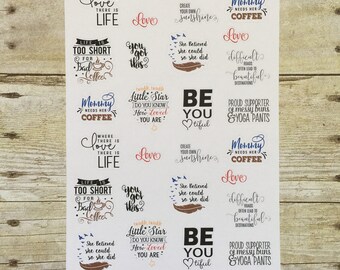 LOVE
THERE IS
LIFE
Love
CREATE
YOUR OWN
Sunshine
Mommy
NEEDS HER
COFFEE
LIFE IS
TOO SHORT
FOR
Bad
Coffee
you
got
this
She Believed
she could
so she did
difficult
ROADS
often lead to
beautiful
DESTINATIONS
Mommy
NEEDS HER
COFFEE
Little Star
DO YOU KNOW
How Loved
YOU ARE
BE
YOU
tiful
PROUD SUPPORTER
of messy buns
& YOGA PANTS
WHERE
THERE IS
Love
THERE IS
LIFE
Love
CREATE
YOUR OWN
Sunshine
Mommy
NEEDS HER
COFFEE
LIFE IS
TOO SHORT
FOR
Bad
Coffee
you
got
this
She Believed
she could
so she did
difficult
ROADS
often lead to
beautiful
DESTINATIONS
She Believed
she could
so she did
Little Star
DO YOU KNOW
How Loved
YOU ARE
BE
YOU
tiful
PROUD SUPPORTER
of messy buns
& YOGA PANTS